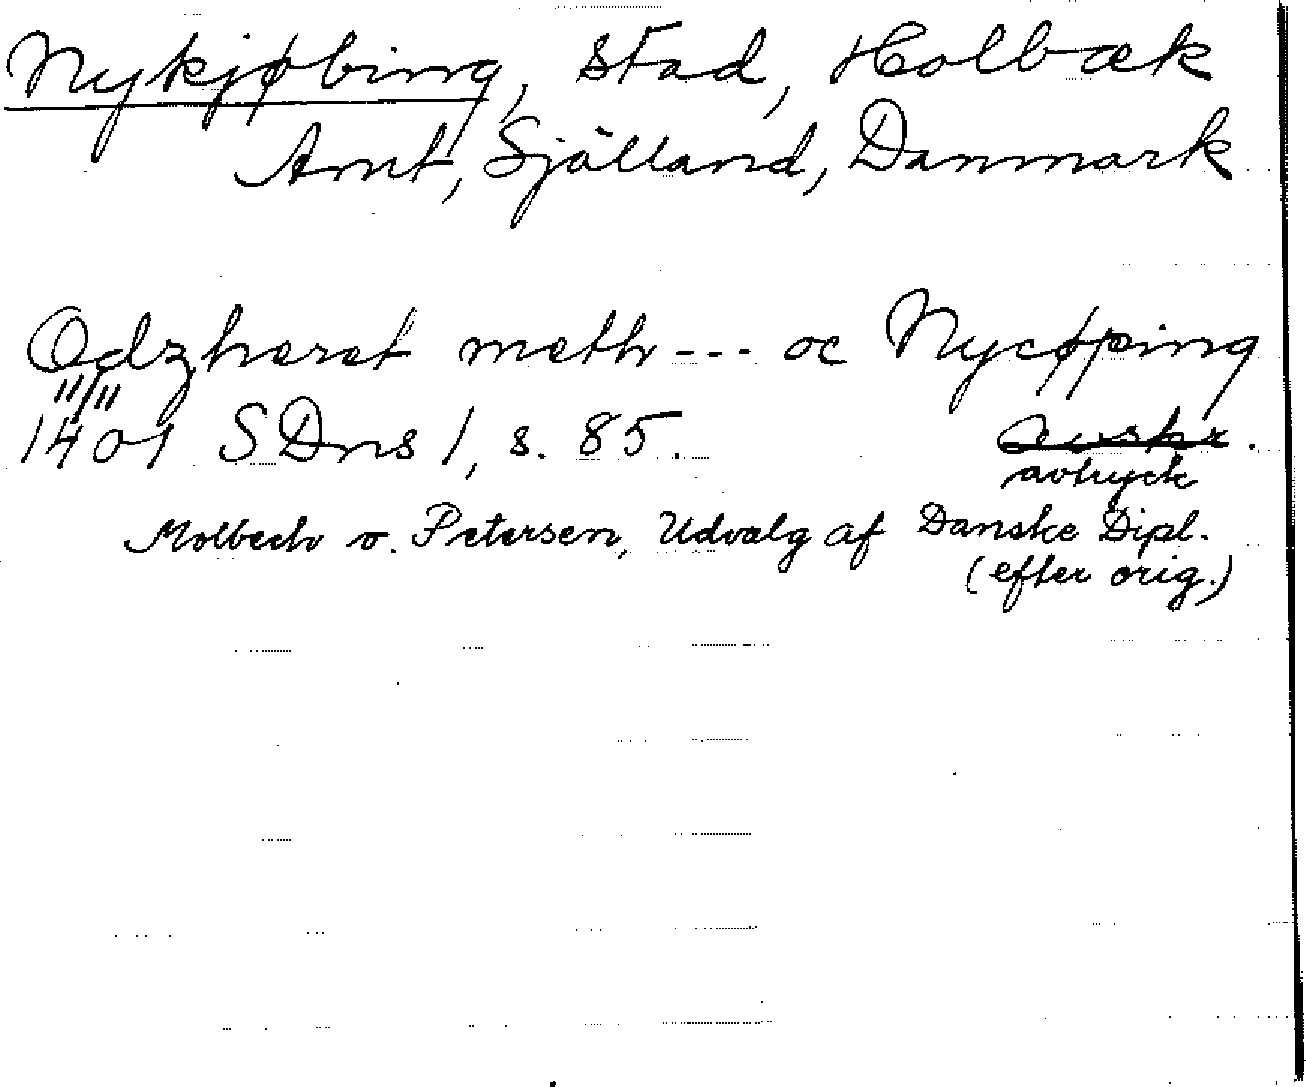 Nykjøbing, stad, Holbæk
Amt, Själland, Danmark
Odzheret meth --- oc Nycøping
11/11
1401 SDns 1, s. 85.
avtryck
Molbech o. Petersen, Udvalg af Danske Dipl.
(efter orig.)